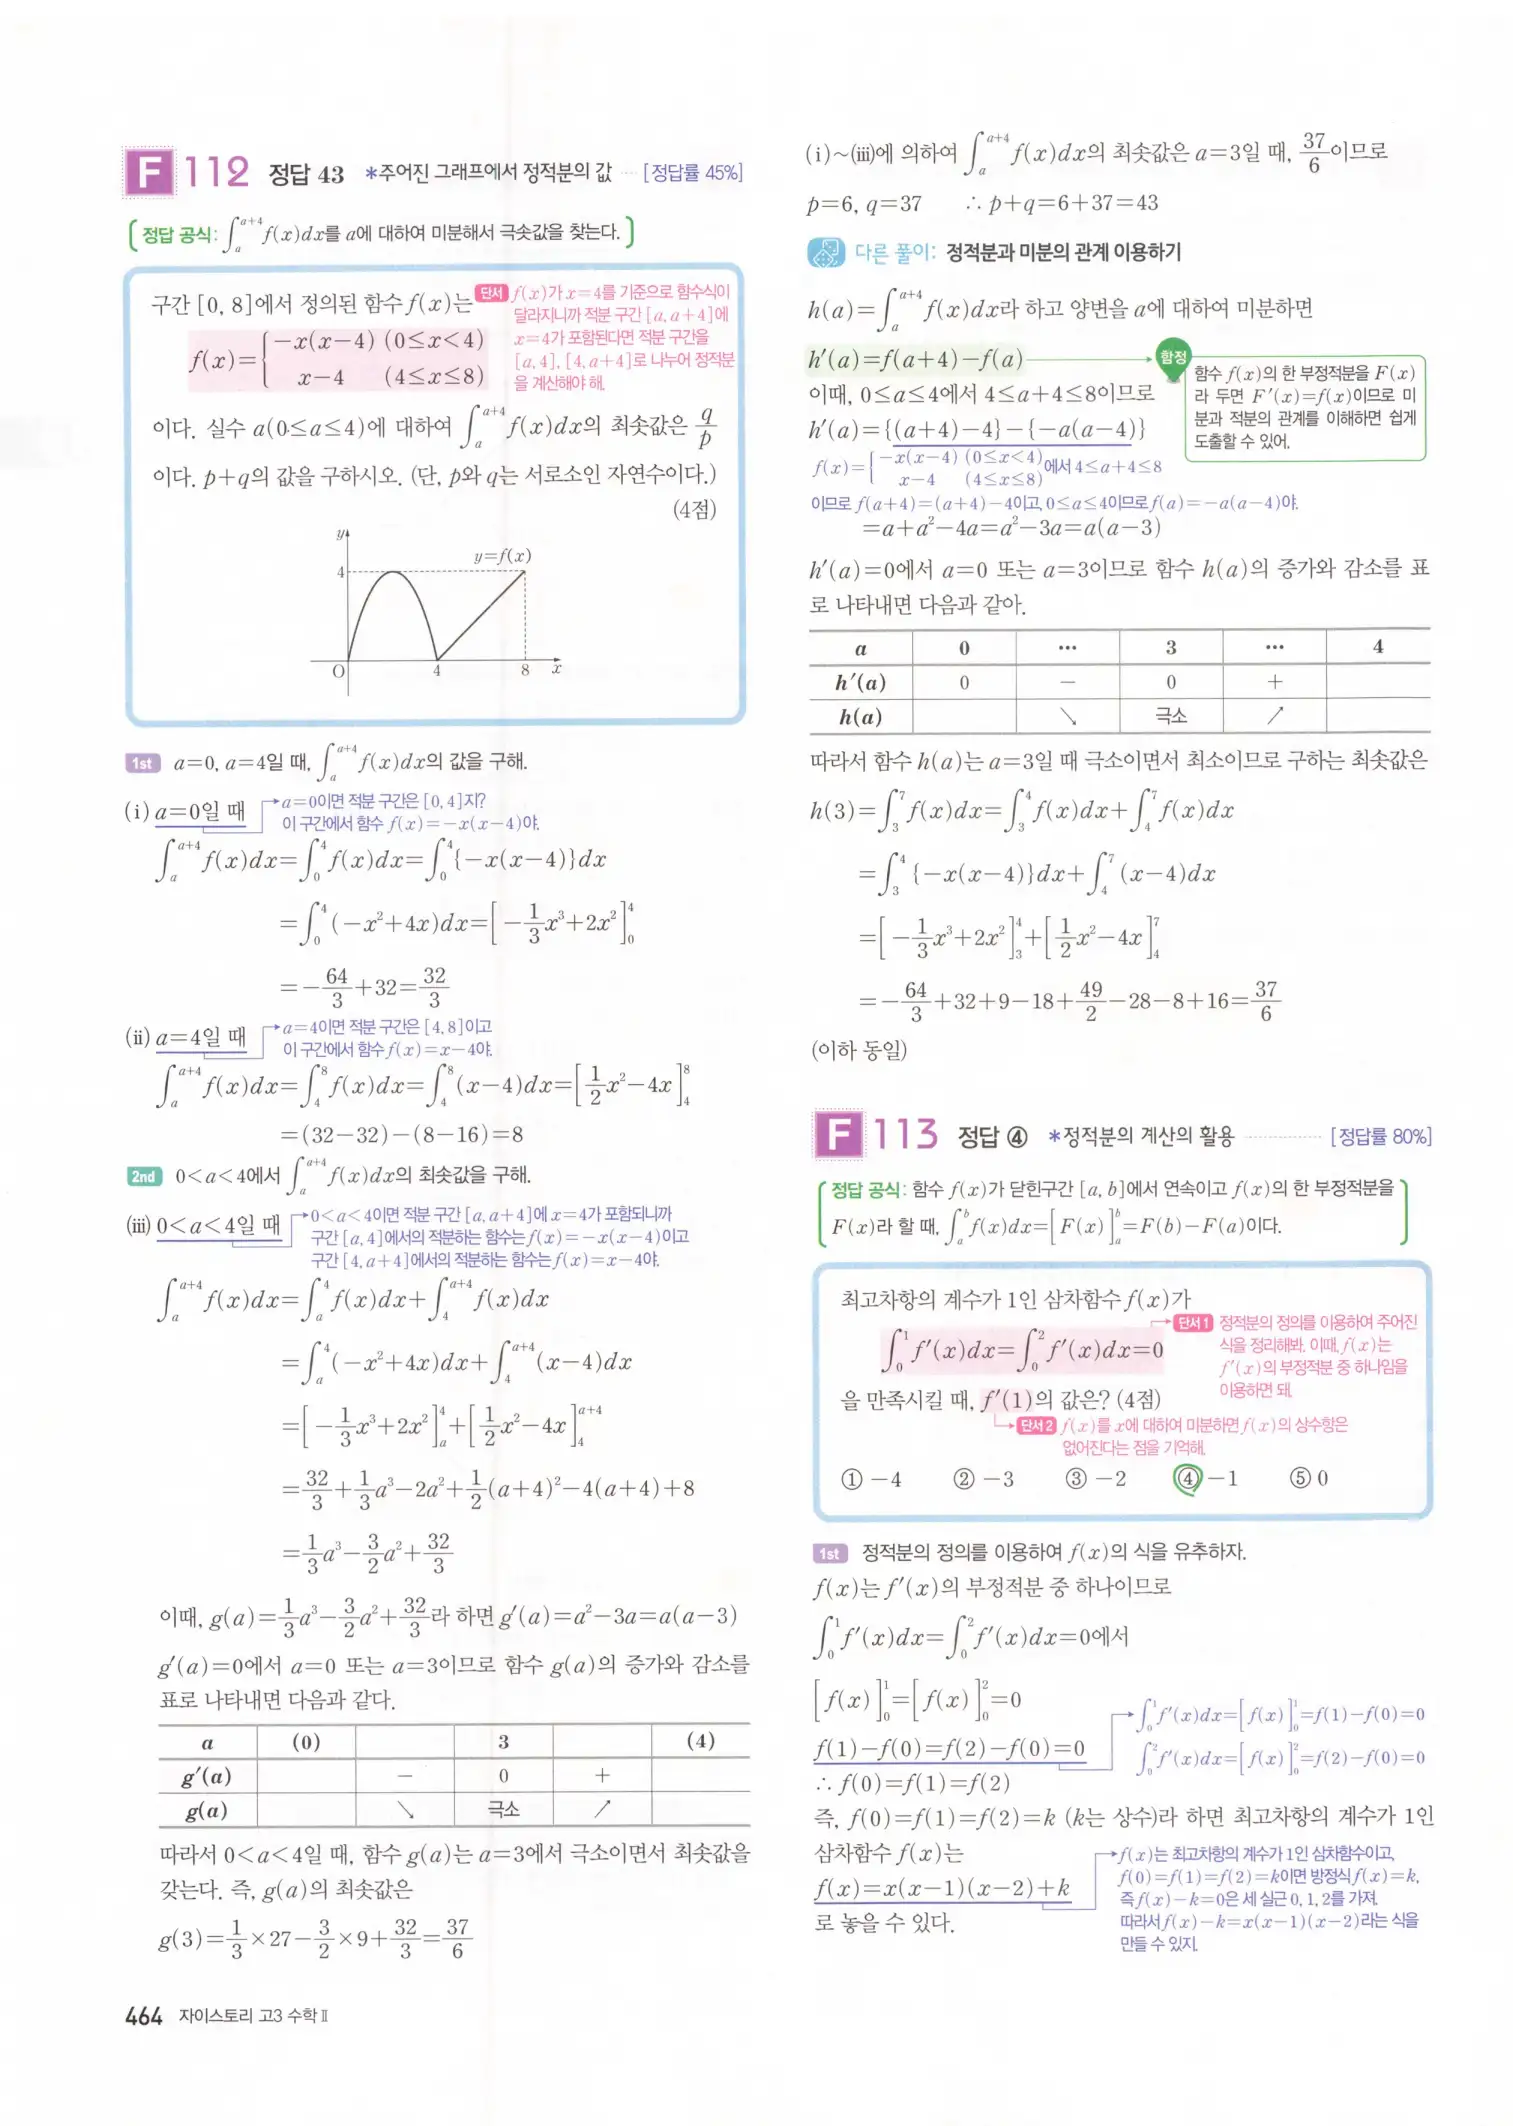 F 112 정답 43 *주어진 그래프에서 정적분의 값 ···· [정답률 45%]
정답 공식: ∫_a^{a+4} f(x)dx를 a에 대하여 미분해서 극솟값을 찾는다.
구간 [0, 8]에서 정의된 함수 f(x)는
단서 f(x)가 x=4를 기준으로 함수식이
달라지니까 적분 구간 [a, a+4]에
x=4가 포함된다면 적분 구간을
[a, 4], [4, a+4]로 나누어 정적분
을 계산해야 해.
f(x)={ -x(x-4) (0≤x<4)
x-4 (4≤x≤8)
이다. 실수 a(0≤a≤4)에 대하여 ∫_a^{a+4} f(x)dx의 최솟값은 q/p
이다. p+q의 값을 구하시오. (단, p와 q는 서로소인 자연수이다.)
(4점)
y
y=f(x)
4
O 4 8 x
1st a=0, a=4일 때, ∫_a^{a+4} f(x)dx의 값을 구해.
(i) a=0일 때
a=0이면 적분 구간은 [0, 4]지?
이 구간에서 함수 f(x)=-x(x-4)야.
∫_a^{a+4} f(x)dx=∫_0^4 f(x)dx=∫_0^4 {-x(x-4)}dx
=∫_0^4 (-x²+4x)dx=[-1/3 x³+2x²]_0^4
=-64/3+32=32/3
(ii) a=4일 때
a=4이면 적분 구간은 [4, 8]이고
이 구간에서 함수 f(x)=x-4야.
∫_a^{a+4} f(x)dx=∫_4^8 f(x)dx=∫_4^8 (x-4)dx=[1/2 x²-4x]_4^8
=(32-32)-(8-16)=8
2nd 0<a<4에서 ∫_a^{a+4} f(x)dx의 최솟값을 구해.
(iii) 0<a<4일 때
0<a<4이면 적분 구간 [a, a+4]에 x=4가 포함되니까
구간 [a, 4]에서의 적분하는 함수는 f(x)=-x(x-4)이고
구간 [4, a+4]에서의 적분하는 함수는 f(x)=x-4야.
∫_a^{a+4} f(x)dx=∫_a^4 f(x)dx+∫_4^{a+4} f(x)dx
=∫_a^4 (-x²+4x)dx+∫_4^{a+4} (x-4)dx
=[-1/3 x³+2x²]_a^4+[1/2 x²-4x]_4^{a+4}
=32/3+1/3 a³-2a²+1/2 (a+4)²-4(a+4)+8
=1/3 a³-3/2 a²+32/3
이때, g(a)=1/3 a³-3/2 a²+32/3라 하면 g′(a)=a²-3a=a(a-3)
g′(a)=0에서 a=0 또는 a=3이므로 함수 g(a)의 증가와 감소를
표로 나타내면 다음과 같다.
a (0) 3 (4)
g′(a) - 0 +
g(a) ↘ 극소 ↗
따라서 0<a<4일 때, 함수 g(a)는 a=3에서 극소이면서 최솟값을
갖는다. 즉, g(a)의 최솟값은
g(3)=1/3×27-3/2×9+32/3=37/6
464 자이스토리 고3 수학 Ⅱ
(i)~(iii)에 의하여 ∫_a^{a+4} f(x)dx의 최솟값은 a=3일 때, 37/6이므로
p=6, q=37 ∴ p+q=6+37=43
다른 풀이: 정적분과 미분의 관계 이용하기
h(a)=∫_a^{a+4} f(x)dx라 하고 양변을 a에 대하여 미분하면
h′(a)=f(a+4)-f(a)
함정
함수 f(x)의 한 부정적분을 F(x)
라 두면 F′(x)=f(x)이므로 미
분과 적분의 관계를 이해하면 쉽게
도출할 수 있어.
이때, 0≤a≤4에서 4≤a+4≤8이므로
h′(a)={(a+4)-4}-{-a(a-4)}
f(x)={ -x(x-4) (0≤x<4)
x-4 (4≤x≤8) 에서 4≤a+4≤8
이므로 f(a+4)=(a+4)-4이고, 0≤a≤4이므로 f(a)=-a(a-4)야.
=a+a²-4a=a²-3a=a(a-3)
h′(a)=0에서 a=0 또는 a=3이므로 함수 h(a)의 증가와 감소를 표
로 나타내면 다음과 같아.
a 0 ··· 3 ··· 4
h′(a) 0 - 0 +
h(a) ↘ 극소 ↗
따라서 함수 h(a)는 a=3일 때 극소이면서 최소이므로 구하는 최솟값은
h(3)=∫_3^7 f(x)dx=∫_3^4 f(x)dx+∫_4^7 f(x)dx
=∫_3^4 {-x(x-4)}dx+∫_4^7 (x-4)dx
=[-1/3 x³+2x²]_3^4+[1/2 x²-4x]_4^7
=-64/3+32+9-18+49/2-28-8+16=37/6
(이하 동일)
F 113 정답 ④ *정적분의 계산의 활용 ············ [정답률 80%]
정답 공식: 함수 f(x)가 닫힌구간 [a, b]에서 연속이고 f(x)의 한 부정적분을
F(x)라 할 때, ∫_a^b f(x)dx=[F(x)]_a^b=F(b)-F(a)이다.
최고차항의 계수가 1인 삼차함수 f(x)가
∫_0^1 f′(x)dx=∫_0^2 f′(x)dx=0
단서1 정적분의 정의를 이용하여 주어진
식을 정리해봐. 이때, f(x)는
f′(x)의 부정적분 중 하나임을
이용하면 돼.
을 만족시킬 때, f′(1)의 값은? (4점)
단서2 f(x)를 x에 대하여 미분하면 f(x)의 상수항은
없어진다는 점을 기억해.
① -4 ② -3 ③ -2 ④ -1 ⑤ 0
1st 정적분의 정의를 이용하여 f(x)의 식을 유추하자.
f(x)는 f′(x)의 부정적분 중 하나이므로
∫_0^1 f′(x)dx=∫_0^2 f′(x)dx=0에서
[f(x)]_0^1=[f(x)]_0^2=0
f(1)-f(0)=f(2)-f(0)=0
∫_0^1 f′(x)dx=[f(x)]_0^1=f(1)-f(0)=0
∫_0^2 f′(x)dx=[f(x)]_0^2=f(2)-f(0)=0
∴ f(0)=f(1)=f(2)
즉, f(0)=f(1)=f(2)=k (k는 상수)라 하면 최고차항의 계수가 1인
삼차함수 f(x)는
f(x)=x(x-1)(x-2)+k
f(x)는 최고차항의 계수가 1인 삼차함수이고,
f(0)=f(1)=f(2)=k이면 방정식 f(x)=k,
즉 f(x)-k=0은 세 실근 0, 1, 2를 가져.
따라서 f(x)-k=x(x-1)(x-2)라는 식을
만들 수 있지.
로 놓을 수 있다.